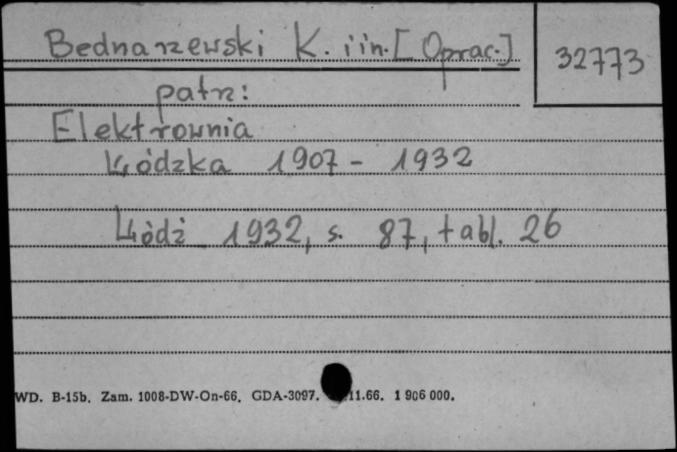 Bednarzewski K. i in. [Oprac.]
32773
patrz:
Elektrownia
Łódzka 1907 - 1932
Łódź 1932, s. 87, tabl. 26
WD. B-15b. Zam. 1008-DW-On-66. GDA-3097. 11.66. 1 906 000.